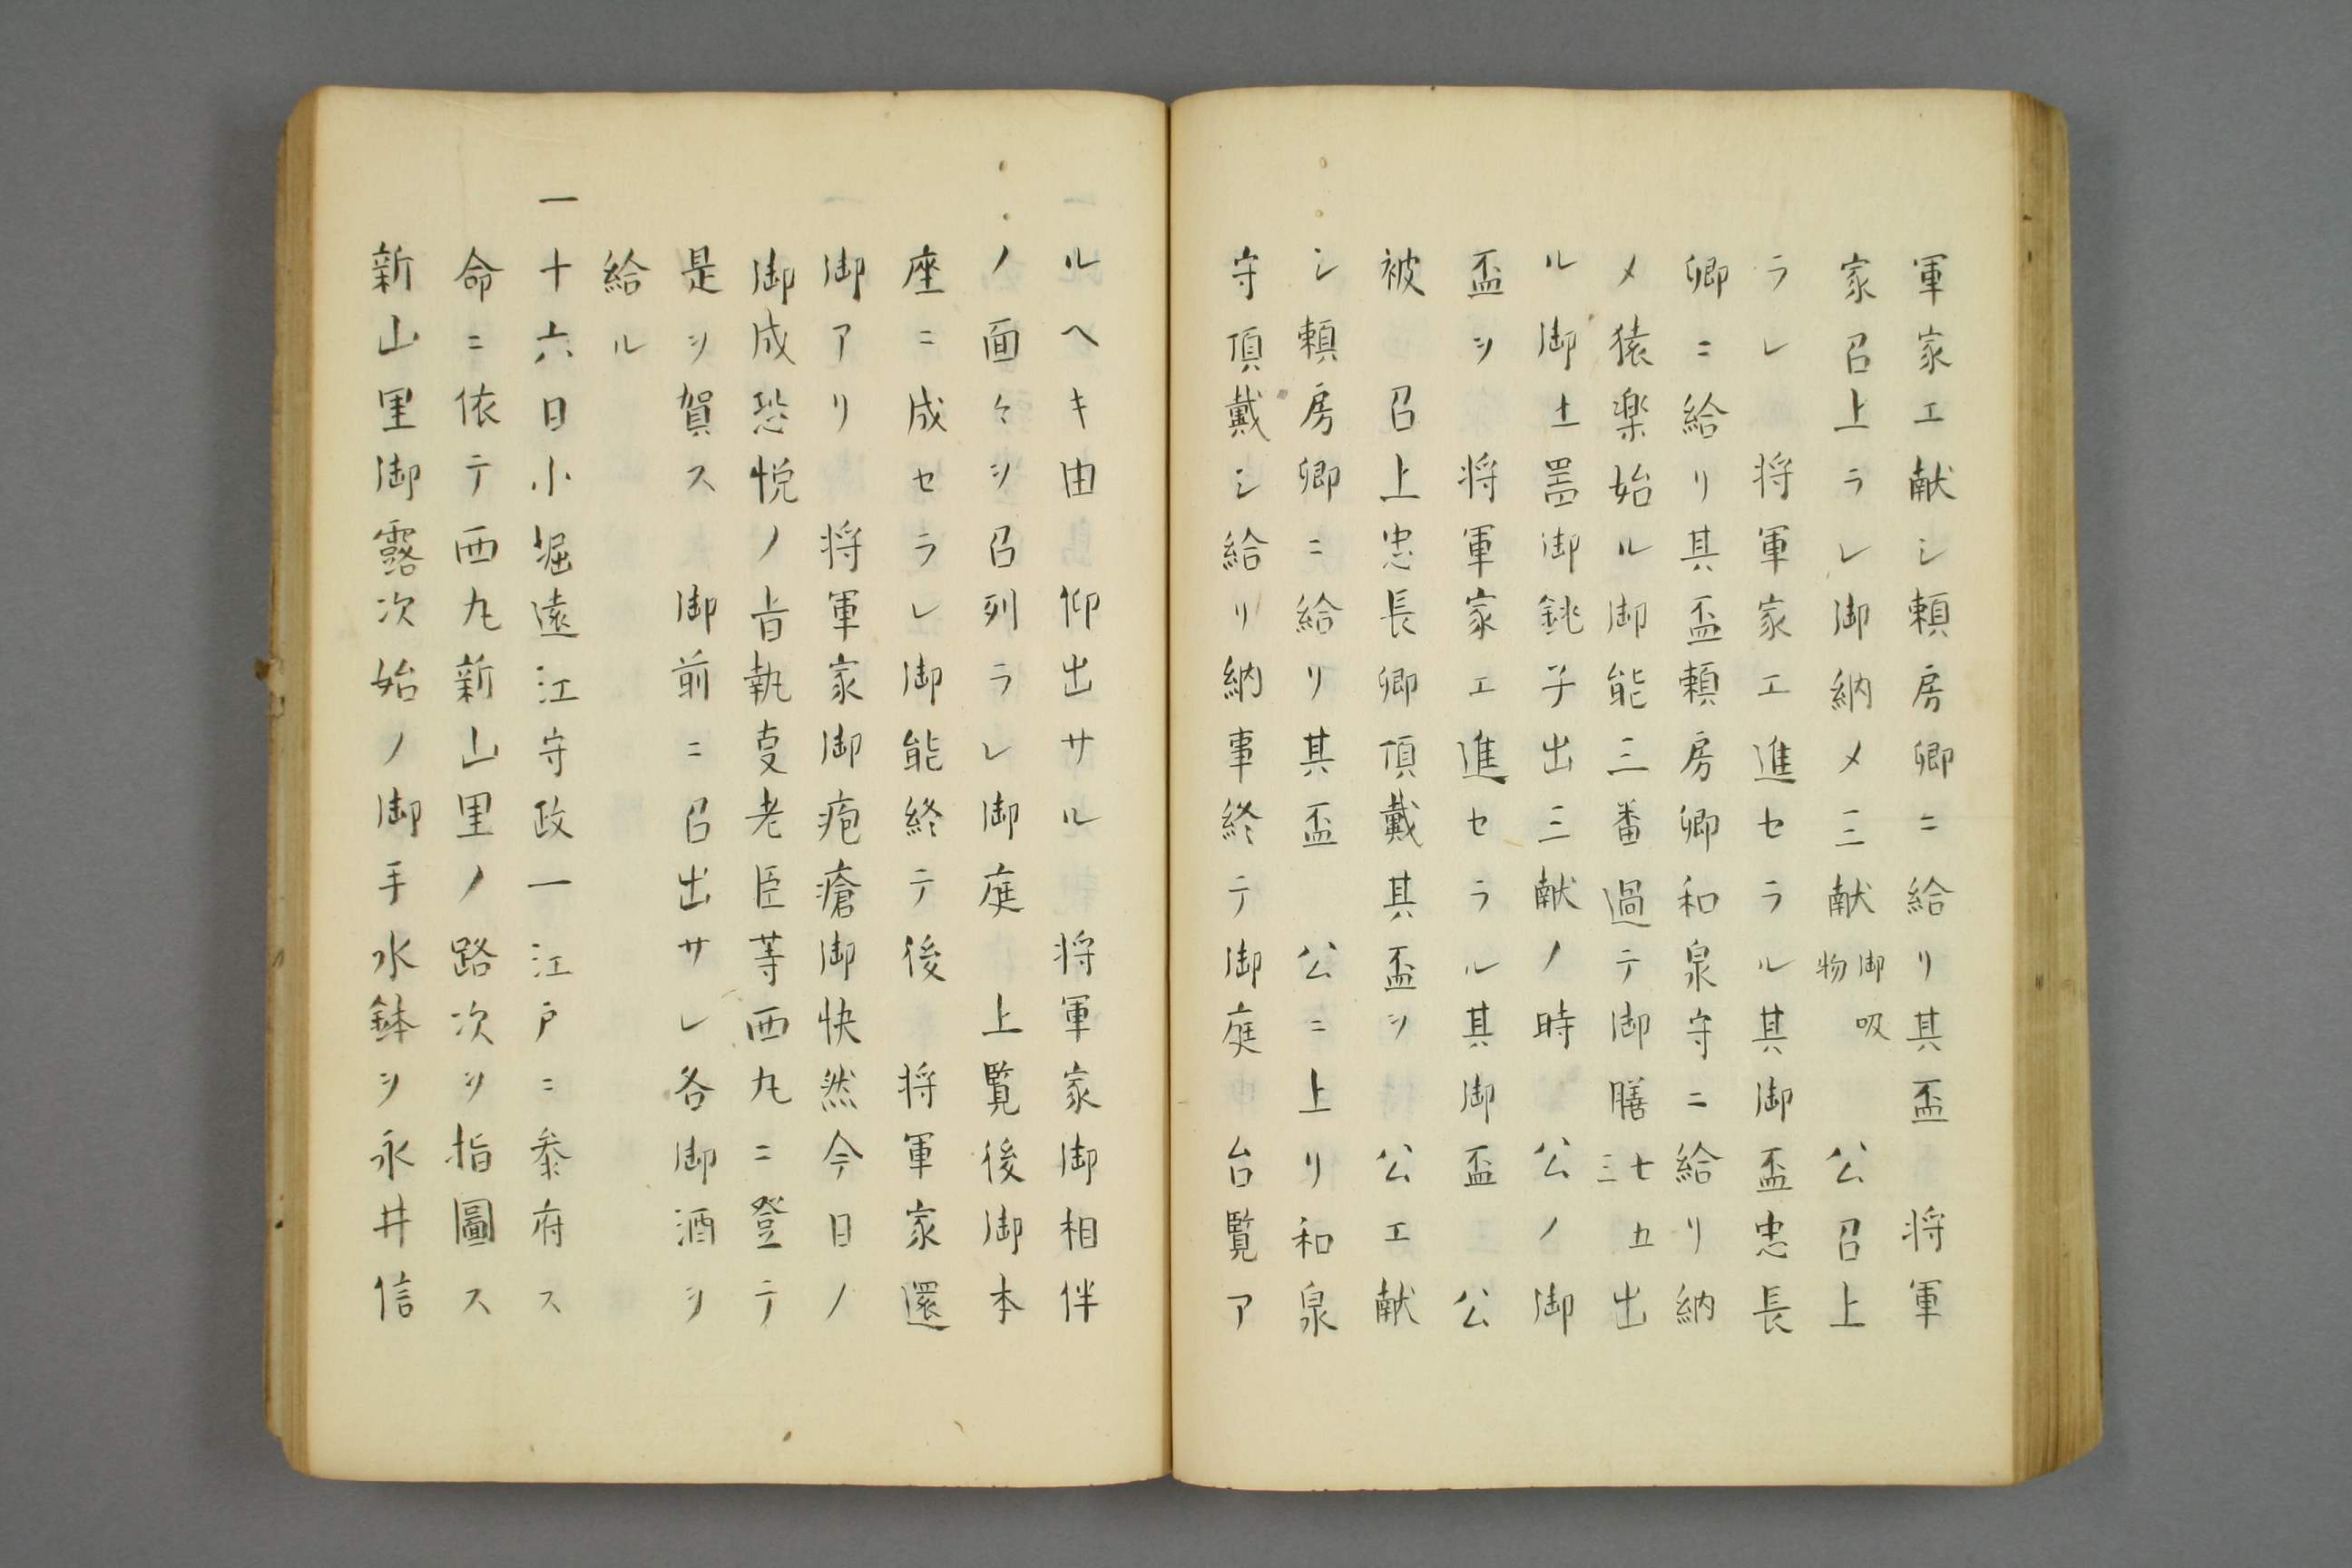 軍家エ献シ頼房卿ニ給リ其盃　将軍
家召上ラレ御納メ三献御吸物　公召上
ラレ　将軍家エ進セラル其御盃忠長
卿ニ給リ其盃頼房卿和泉守ニ給リ納
メ猿楽始ル御能三番過テ御膳七五三出
ル御土器御銚子出三献ノ時　公ノ御
盃ヲ　将軍家エ進セラル其御盃　公
被　召上忠長卿頂戴其盃ヲ　公エ献
シ頼房卿ニ給リ其盃　公ニ上リ和泉
守頂戴シ給リ納事終テ御庭　台覧ア
ルヘキ由　仰出サル　将軍家御相伴
ノ面々ヲ召列ラレ御庭　上覧後御本
座ニ成セラレ御能終テ後　将軍家還
御アリ　将軍家御疱瘡御快然今日ノ
御成恐悦ノ旨執叓老臣等西丸ニ登テ
是ヲ賀ス　御前ニ召出サレ各御酒ヲ
給ル
一十六日小堀遠江守政一江戸ニ参府ス
命ニ依テ西丸新山里ノ路次ヲ指圖ス
新山里御露次始ノ御手水鉢ヲ永井信